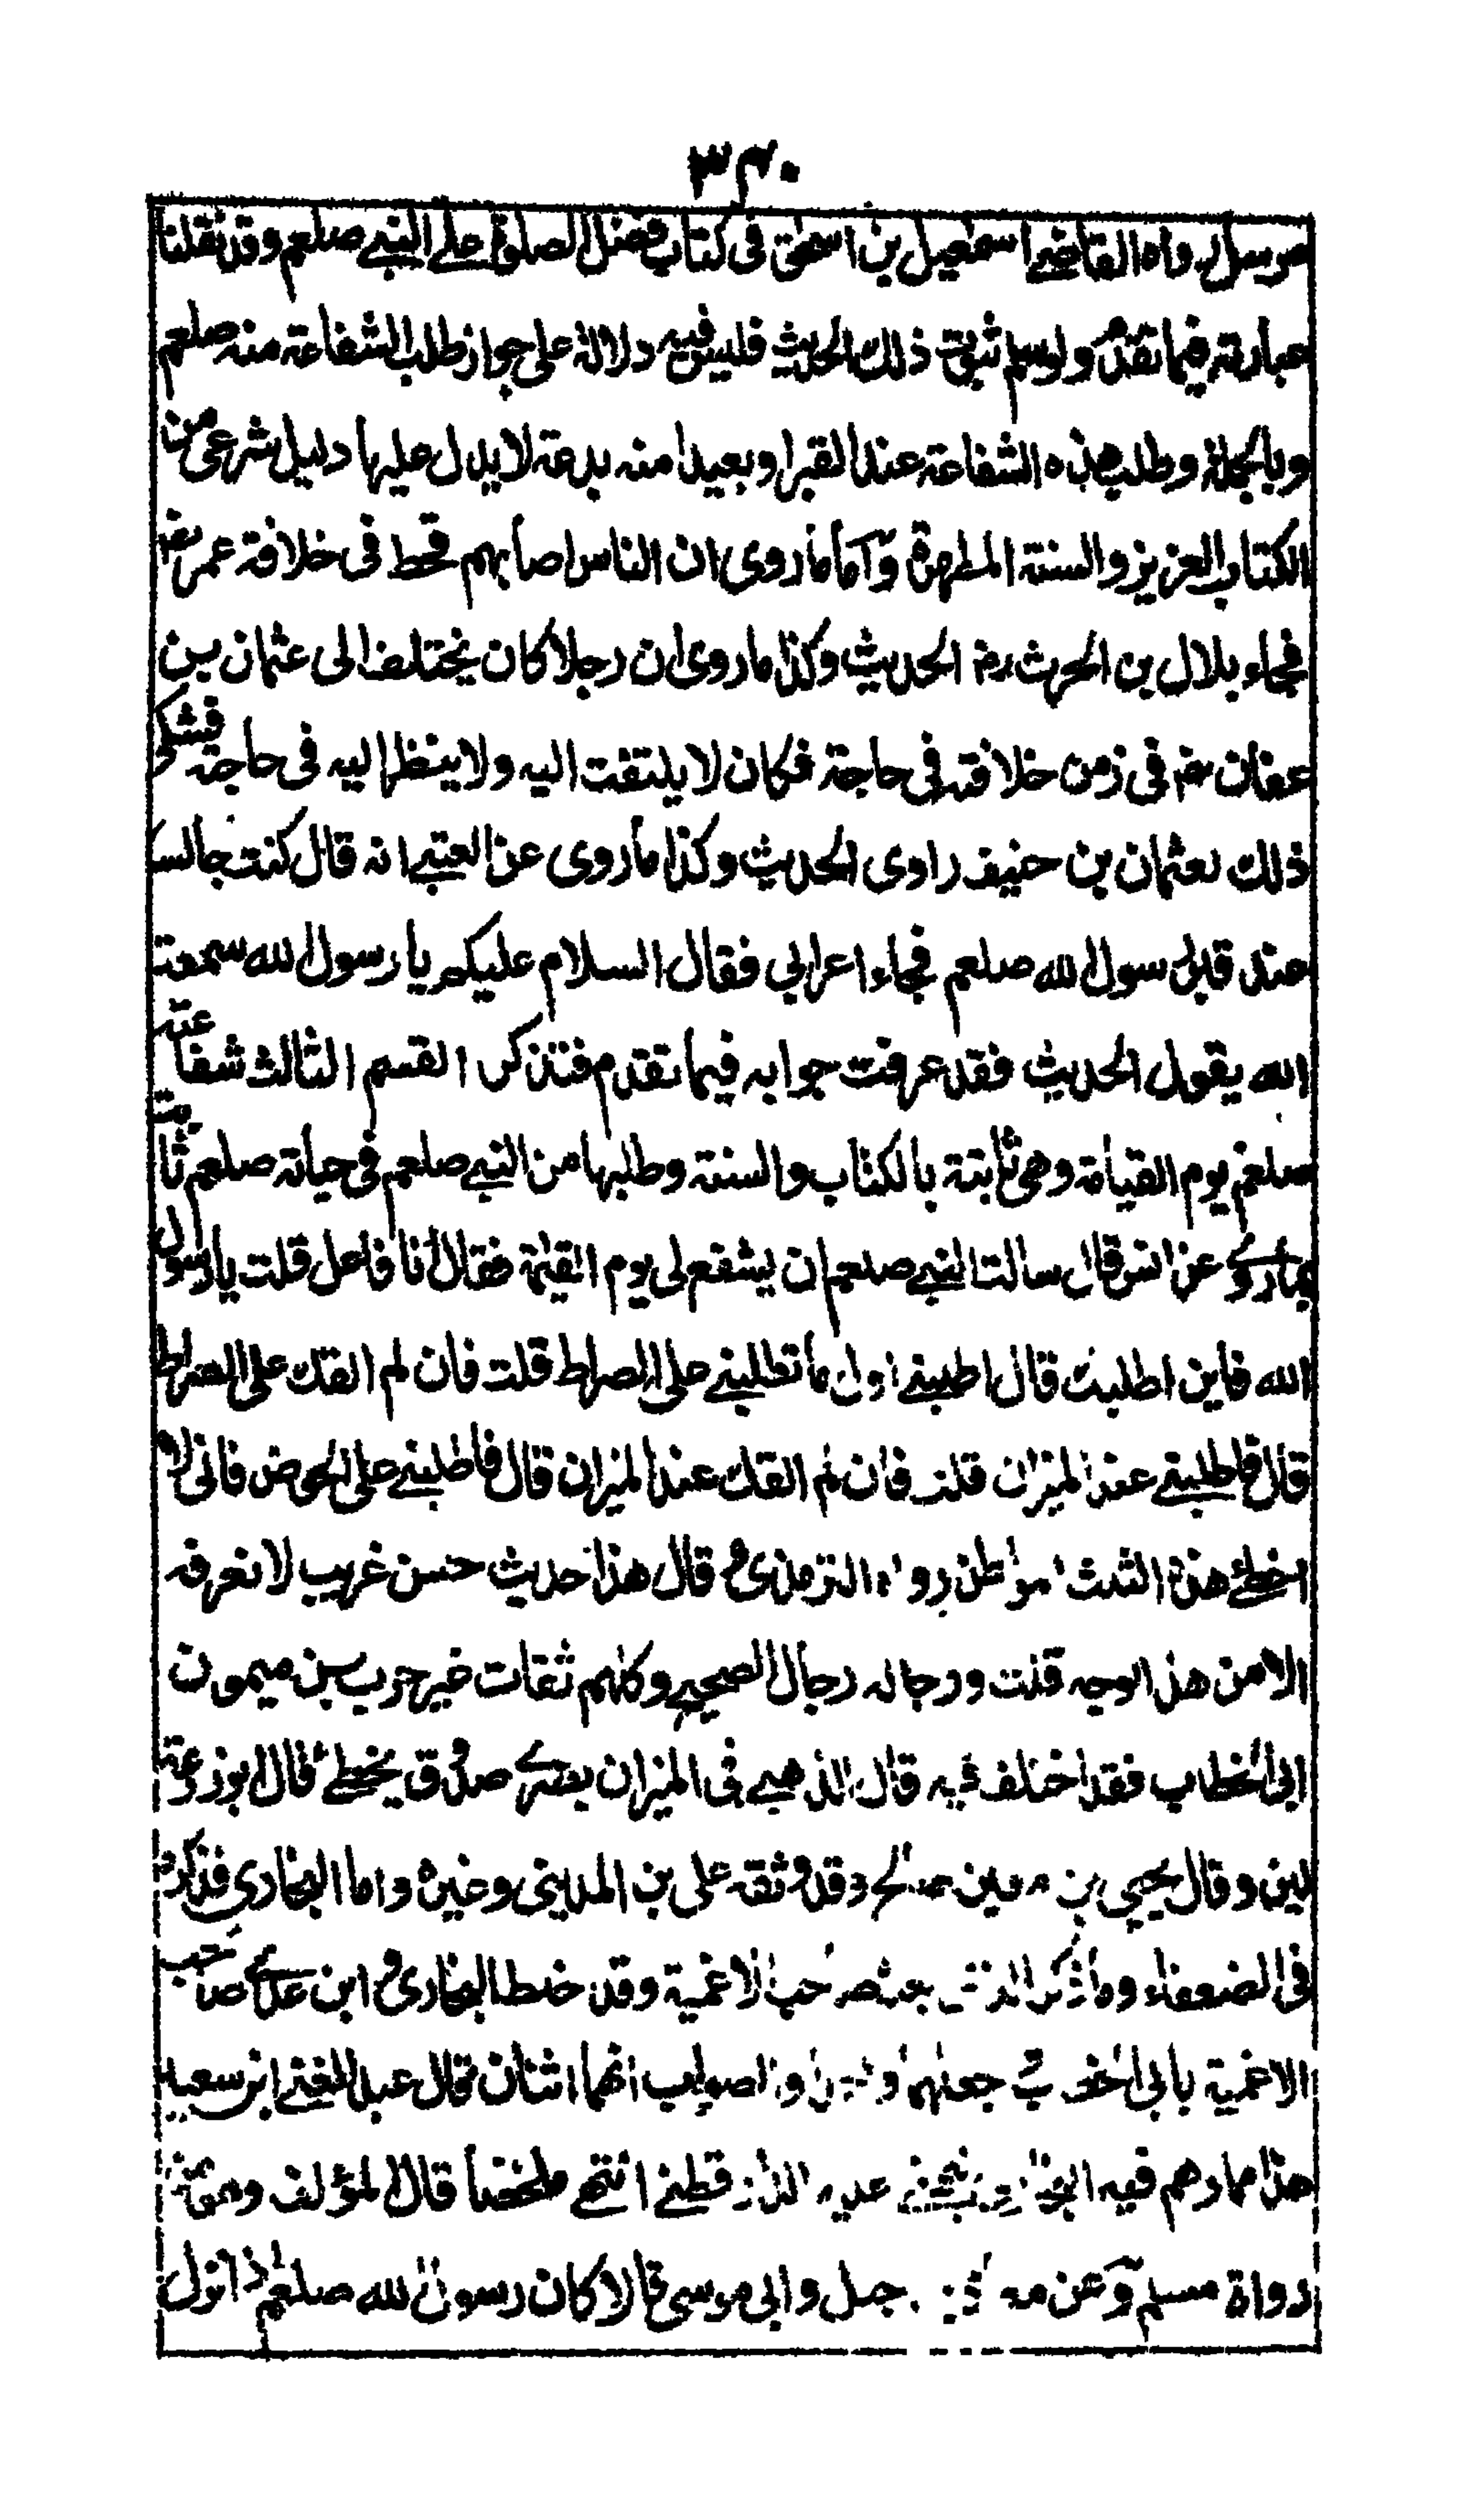 ٣٤٠
مرسل رواه القاضي اسمعيل بن اسحق فى كتاب فضل الصلوة على النبي صلعم وقد نقلنا
عبارته فيما تقدم ولو سلم ثبوت ذلك الحديث فليس فيه دلالة على جواز طلب الشفاعة منه صلعم
وبالجملة وطلب هذه الشفاعة عند القبر او بعيدا منه بدعة لا يدل عليها دليل شرعى من
الكتاب العزيز والسنة المطهرة وأما ما روى ان الناس اصابهم قحط فى خلافة عمر رض
فجاء بلال بن الحرث رض الحديث وكذا ما روى ان رجلا كان يختلف الى عثمان بن
عفان رض فى زمن خلافته فى حاجة فكان لا يلتفت اليه ولا ينظر اليه فى حاجة فشكى
ذلك لعثمان بن حنيف راوى الحديث وكذا ما روى عن العتبي انه قال كنت جالسا
عند قبر رسول الله صلعم فجاء اعرابي فقال السلام عليكم يا رسول الله سمعت
الله يقول الحديث فقد عرفت جوابه فيما تقدم فتذكر القسم الثالث شفاعته
صلعم يوم القيامة وهى ثابتة بالكتاب والسنة وطلبها من النبي صلعم فى حياته صلعم ثابت
بما روى عن انس قال سالت النبي صلعم ان يشفع لى يوم القيمة فقال انا فاعل قلت يا رسول
الله فاين اطلبك قال اطلبني اول ما تطلبني على الصراط قلت فان لم القك على الصراط
قال فاطلبني عند الميزان قلت فان لم القك عند الميزان قال فاطلبني على الحوض فانى لا
اخطئ هذه الثلث المواطن رواه الترمذى وقال هذا حديث حسن غريب لا نعرفه
الا من هذا الوجه قلت ورجاله رجال الصحيح وكلهم ثقات غير حرب بن ميمون
ابى الخطاب فقد اختلف فيه قال الذهبي فى الميزان بصرى صدوق يخطئ قال ابو زرعة
لين وقال يحيى بن معين صالح وقد وثقه على بن المدينى وغيره واما البخارى فذكره
فى الضعفاء وما ذكر الذى بعده صاحب الاغمية وقد خلط البخارى وابن عدى صاحب
الاغمية بابى الخطاب جعلهما واحدا والصواب انهما اثنان قال عبد الغني ابن سعيد
هذا مما وهم فيه البخارى نبهني عليه الدارقطني انتهى ملخصا قال المؤلف
رواه مسلم وعن معاذ بن جبل وابى موسى قالا كان رسول الله صلعم اذا نزل